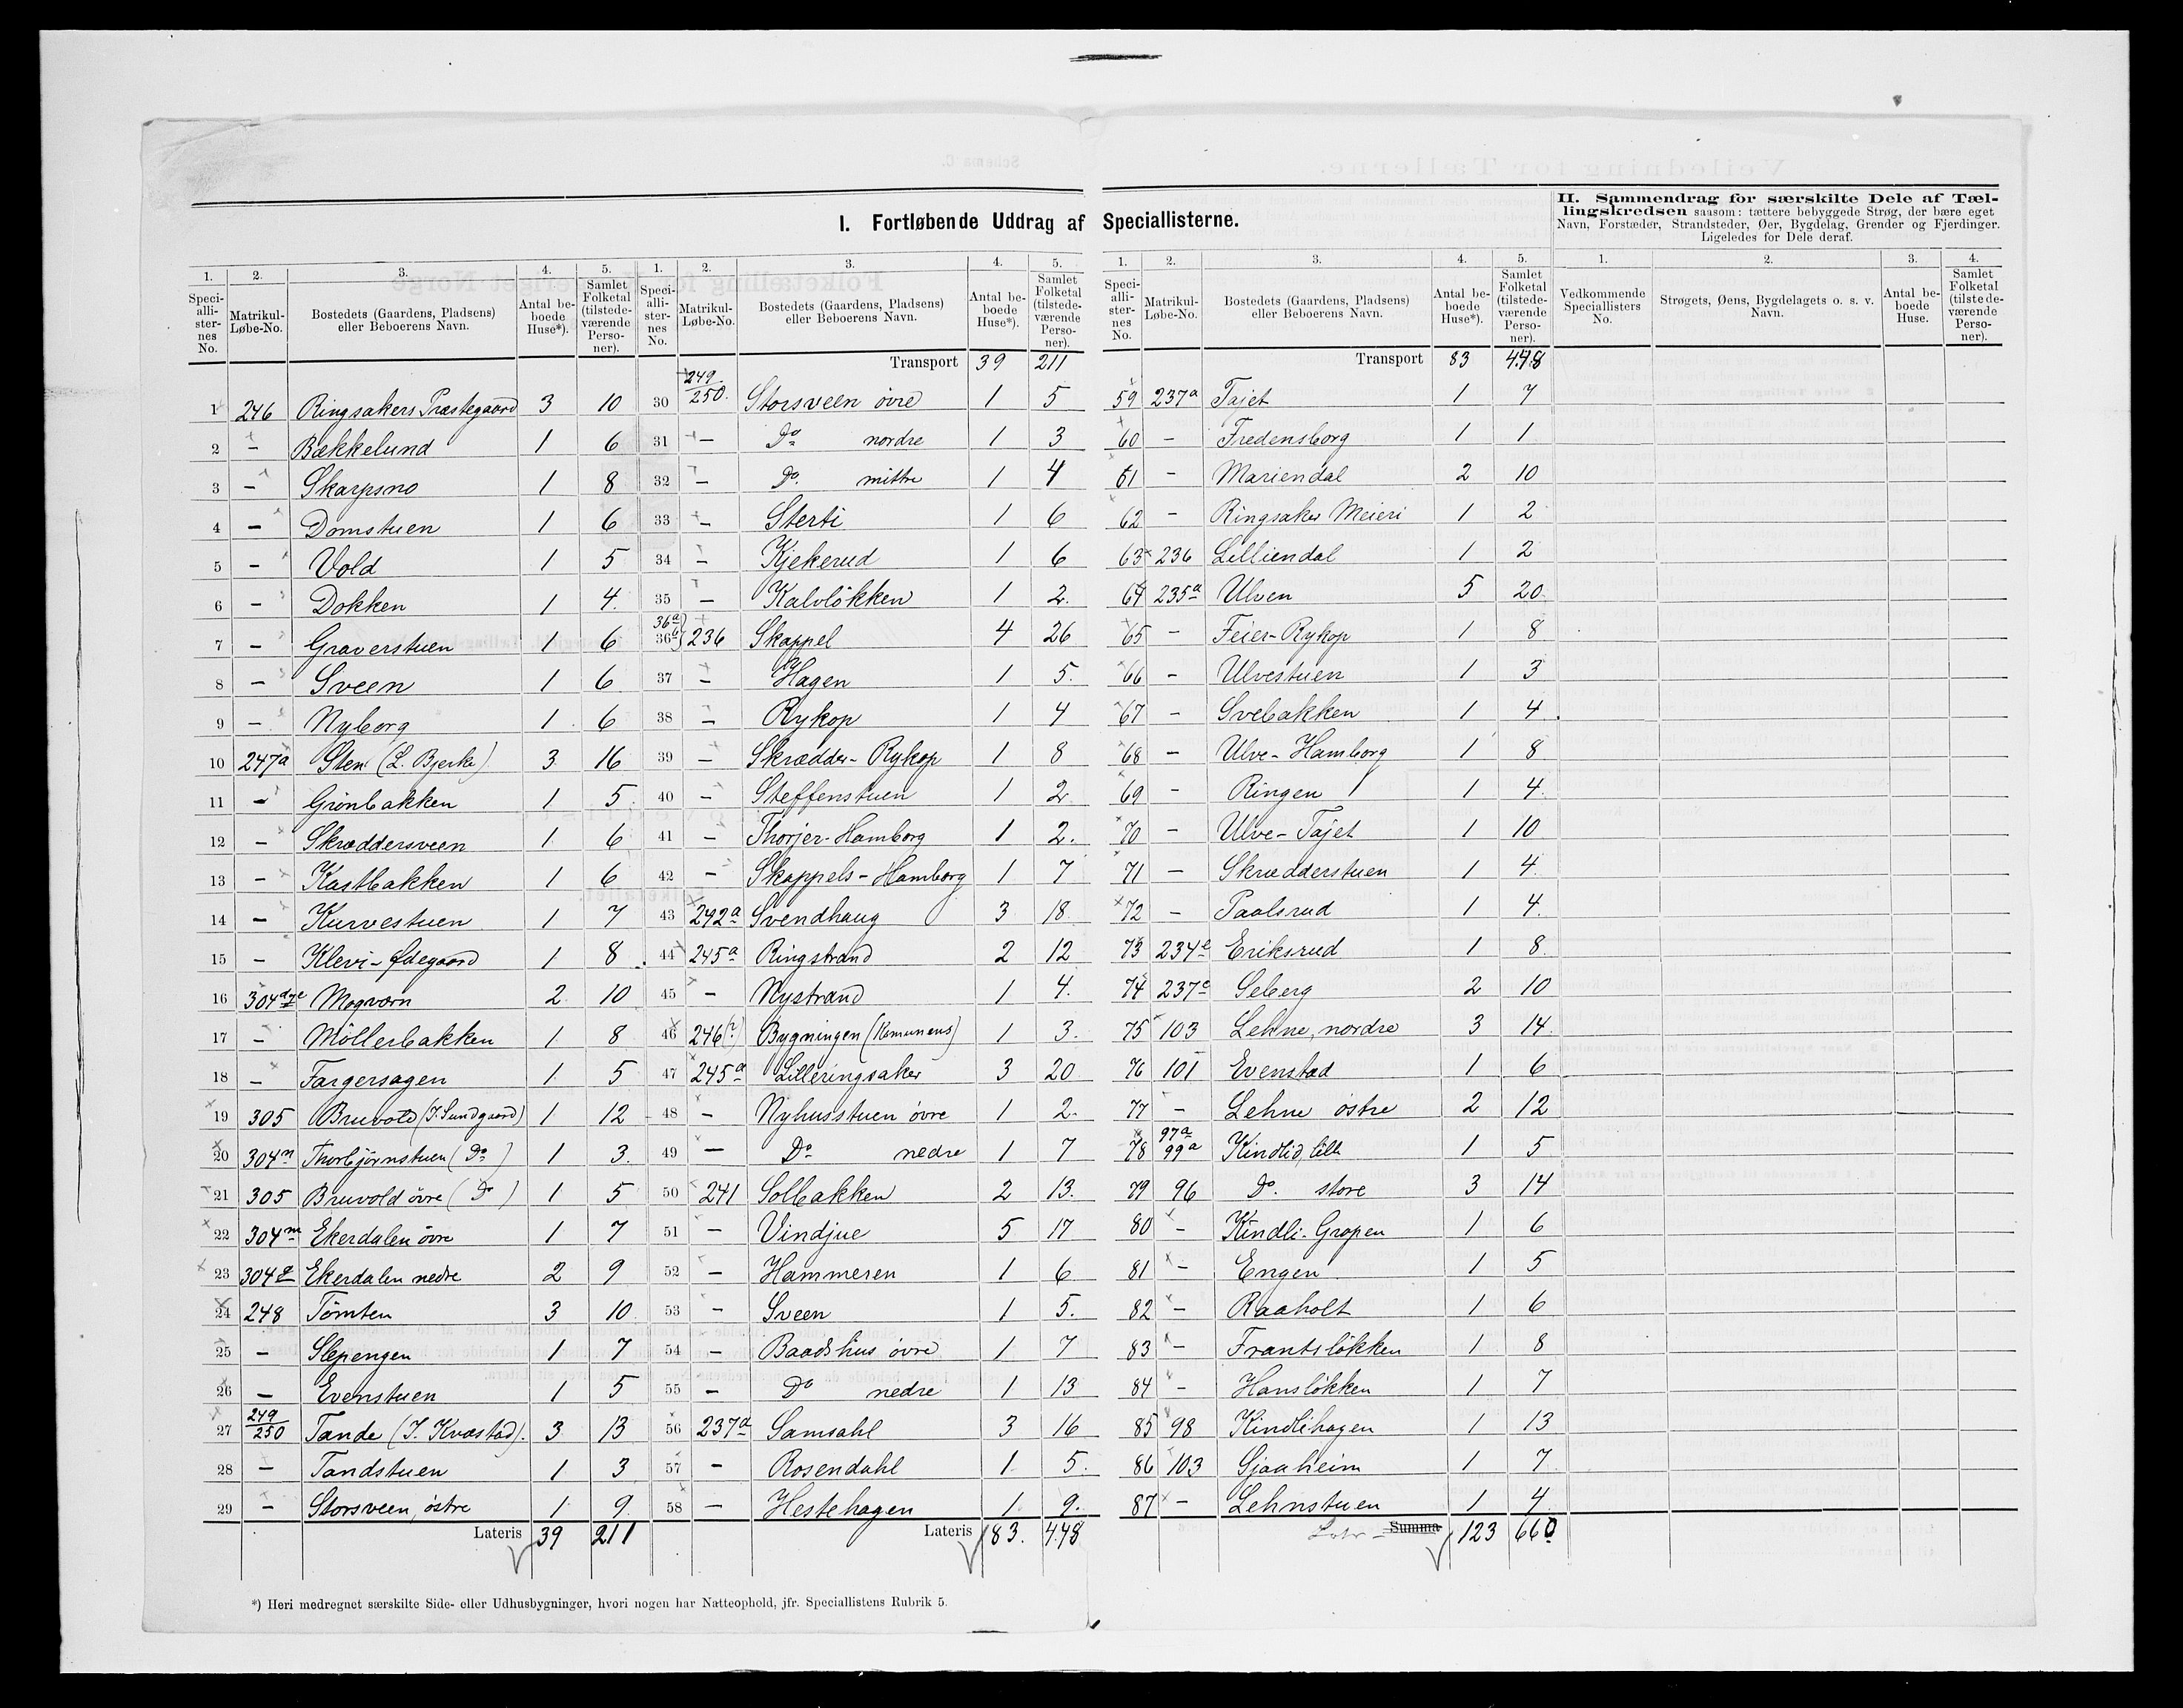 I. Fortløbende Uddrag af Speciallisterne.
1. 2. 3. 4. 5.
Speciallisternes No. Matrikul-Løbe-No. Bostedets (Gaardens, Pladsens) eller Beboerens Navn. Antal beboede Huse*). Samlet Folketal (tilstedeværende Personer).
1 246 Ringsakers Præstegaard 3 10
2 – Bækkelund 1 6
3 – Skarpsno 1 8
4 – Domstuen 1 6
5 – Vold 1 5
6 – Dokken 1 4.
7 – Graverstuen 1 6
8 – Sveen 1 6
9 – Nyborg 1 6
10 247a Sten (L. Bjerke) 3 16
11 – Grönbakken 1 5
12 – Skræddersveen 1 6
13 – Kastbakken 1 6
14 – Kurvestuen 1 7
15 – Klevi-Ødegaard 1 8
16 304d,e Mogvorn 2 10
17 – Möllerbakken 1 8
18 – Fargersagen 1 5
19 305 Bruvold (J. Sundgaard) 1 12
20 304n Thorbjörnstuen (Do) 1 3.
21 305 Bruvold övre (Do) 1 5
22 304m Ekerdalen övre 1 7
23 304 Ekerdalen nedre 2 9
24 248 Tömten 3 10
25 – Slepengen 1 7
26 – Evenstuen 1 5
27 249/250 Tande (J. Kvæstad). 3 13
28 – Tandstuen 1 3
29 – Storsveen, östre 1 9
Lateris 39 211
1. 2. 3. 4. 5.
Speciallisternes No. Matrikul-Løbe-No. Bostedets (Gaardens, Pladsens) eller Beboerens Navn. Antal beboede Huse*). Samlet Folketal (tilstedeværende Personer).
Transport 39 211
30 249/250. Storsveen övre 1 5
31 – Do nordre 1 3
32 – Do. mittre 1 4
33 – Sterti 1 6
34 – Kjekerud 1 6
35 – Kalvlökken 1 2.
36a 36b 236 Skappel 4 26
37 – Hagen 1 5.
38 – Rykop 1 4
39 – Skrædder-Rykop 1 8
40 – Steffenstuen 1 2
41 – Thorjer-Hamborg 1 2.
42 – Skappels-Hamborg 1 7
43 292a Svendhaug 3 18
44 245a Ringstrand 2 12
45 – Nystrand 1 4.
46 246(?) Bygningen (Komunens) 1 3.
47 245a Lilleringsaker 3 20
48 – Nyhusstuen övre 1 2.
49 – Do nedre 1 7
50 241 Solbakken 2 13.
51 – Vindjue 5 17
52 – Hammeren 1 6
53 – Sveen 1 5.
54 – Baadshus övre 1 7
55 – Do nedre 1 13
56 237a Samsahl 3 16
57 – Rosendahl 1 5.
58 – Hestehagen 1 9.
Lateris 83. 448
1. 2. 3. 4. 5.
Speciallisternes No. Matrikul-Løbe-No. Bostedets (Gaardens, Pladsens) eller Beboerens Navn. Antal beboede Huse*). Samlet Folketal (tilstedeværende Personer).
Transport 83 448
59 237a Tajet 1 7
60 – Fredensborg 1 1
61 – Mariendal 2 10
62 – Ringsaker Meieri 1 2
63 236 Lilliendal 1 2
64 235a Ulven 5 20
65 – Feier-Rykop 1 8
66 – Ulvestuen 1 3
67 – Svebakken 1 4.
68 – Ulve-Hamborg 1 8
69 – Ringen 1 4.
70 – Ulve-Tajet 1 10
71 – Skrædderstuen 1 4.
72 – Paalsrud 1 4.
73 234e Eriksrud 1 8
74 237c Seberg 2 10
75 103 Lehne, nordre 3 14
76 101 Evenstad 1 6
77 – Lehne östre 2 12
78 97a 99a Kindlid, lille 1 5
79 96 Do. store 3 14
80 – Kindli-Gropen 1 6
81 – Engen 1 5
82 – Raaholt 1 6
83 – Frantslökken 1 8
84 – Hanslökken 1 7
85 98 Kindlihagen 1 13
86 103 Sjaaheim 1 7
87 – Lehnstuen 1 4
Summa 123 660
II. Sammendrag for særskilte Dele af Tællingskredsen saasom: tættere bebyggede Strøg, der bære eget
Navn, Forstæder, Strandsteder, Øer, Bygdelag, Grender og Fjerdinger.
Ligeledes for Dele deraf.
1. 2. 3. 4.
Vedkommende Speciallisters No. Strøgets, Øens, Bygdelagets o. s. v. Navn. Antal beboede Huse. Samlet Folketal (tilstedeværende Personer).
*) Heri medregnet særskilte Side- eller Udhusbygninger, hvori nogen har Natteophold, jfr. Speciallistens Rubrik 5.